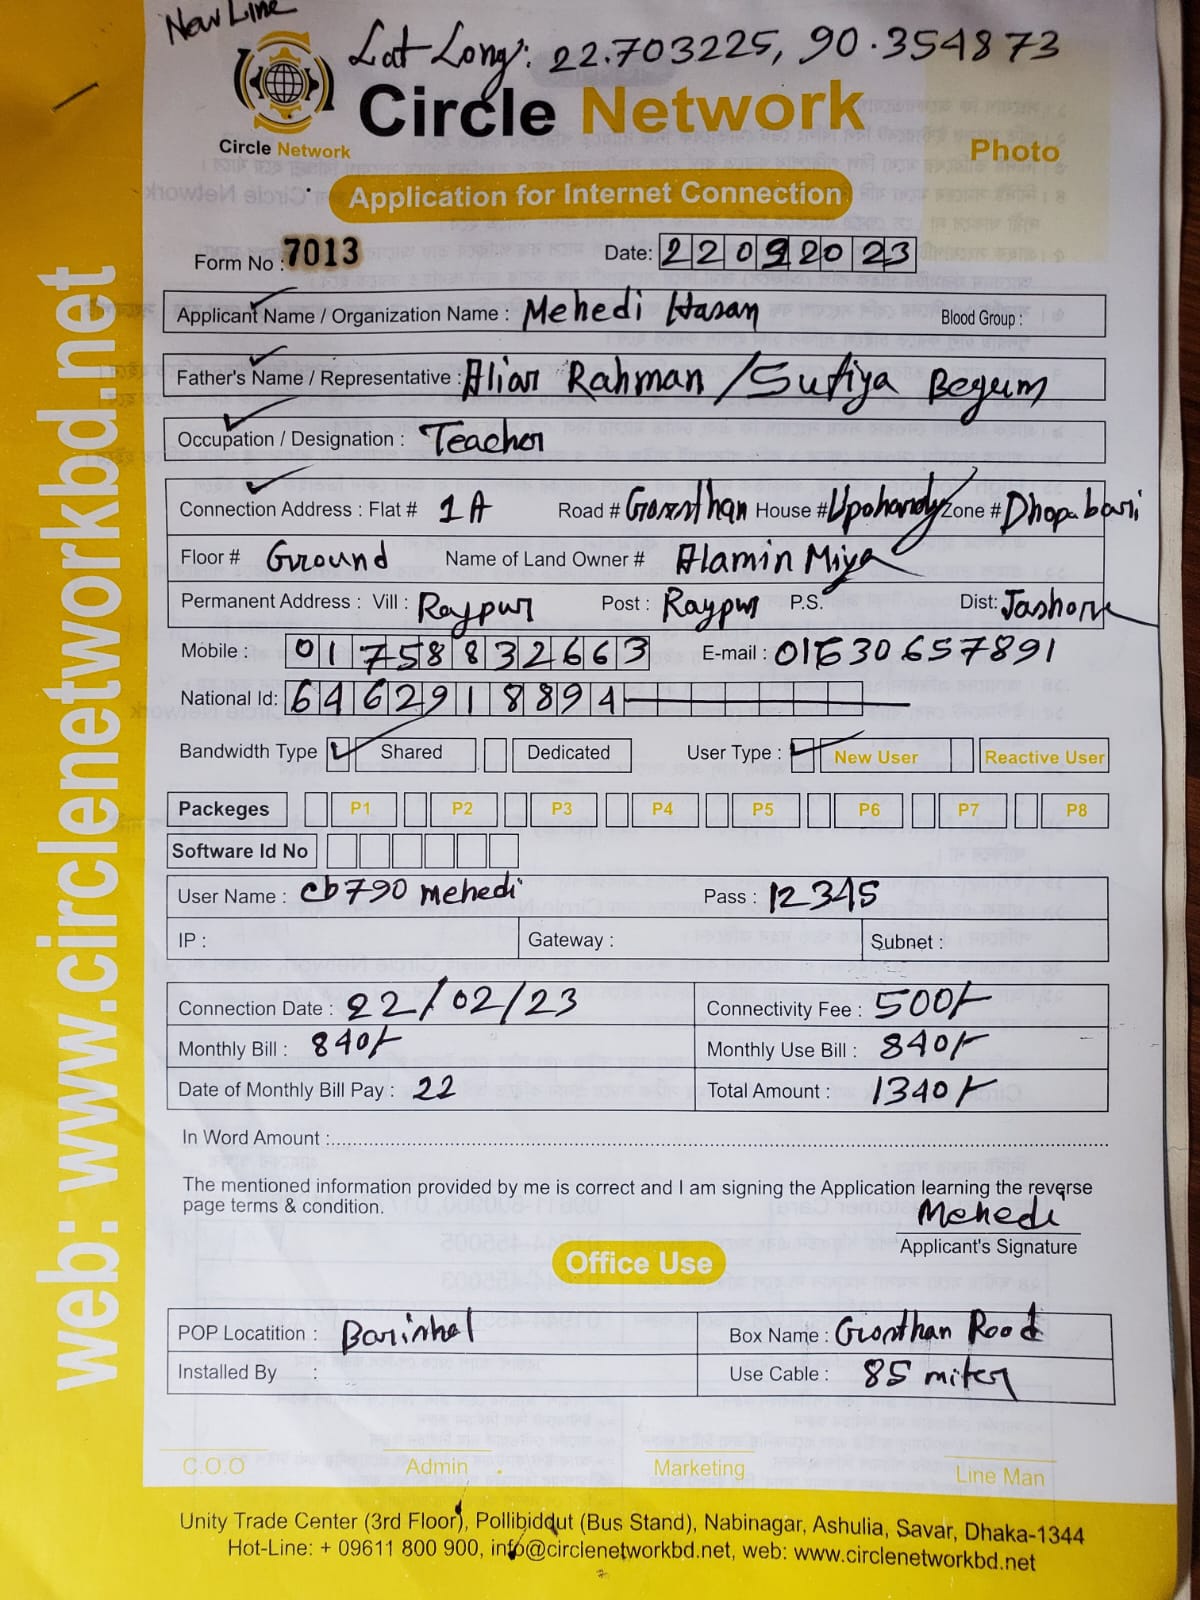 New Line
Lat-Long: 22.703225, 90.354873
Circle Network
Circle Network
Photo
Application for Internet Connection
Form No : 7013 Date: 22092023
Applicant Name / Organization Name : Mehedi Hasan Blood Group :
Father's Name / Representative : Aliar Rahman / Sufiya Begum
Occupation / Designation : Teacher
Connection Address : Flat # 1A Road # Gorosthan House # Zone # Dhopabari
Floor # Ground Name of Land Owner # Alamin Miya
Permanent Address : Vill : Raypur Post : Raypur P.S. Dist: Jashore
Mobile : 01758832663 E-mail : 01630657891
National Id: 6462918894
Bandwidth Type Shared Dedicated User Type : New User Reactive User
Packeges P1 P2 P3 P4 P5 P6 P7 P8
Software Id No
User Name : cb790 mehedi Pass : 12345
IP : Gateway : Subnet :
Connection Date : 22/02/23 Connectivity Fee : 500/-
Monthly Bill : 840/- Monthly Use Bill : 840/-
Date of Monthly Bill Pay : 22 Total Amount : 1340/-
In Word Amount :
The mentioned information provided by me is correct and I am signing the Application learning the reverse
page terms & condition.
Mehedi
Applicant's Signature
Office Use
POP Locatition : Barishal Box Name : Grosthan Road
Installed By : Use Cable : 85 miter
C.O.O Admin Marketing Line Man
Unity Trade Center (3rd Floor), Pollibiddut (Bus Stand), Nabinagar, Ashulia, Savar, Dhaka-1344
Hot-Line: + 09611 800 900, info@circlenetworkbd.net, web: www.circlenetworkbd.net
web: www.circlenetworkbd.net